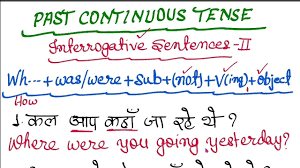 PAST CONTINUOUS TENSE
Interrogative Sentences-II
Wh--- + was/were + Sub + (not) + V(ing) + object
How
1. कल आप कहाँ जा रहे थे ?
Where were you going yesterday?